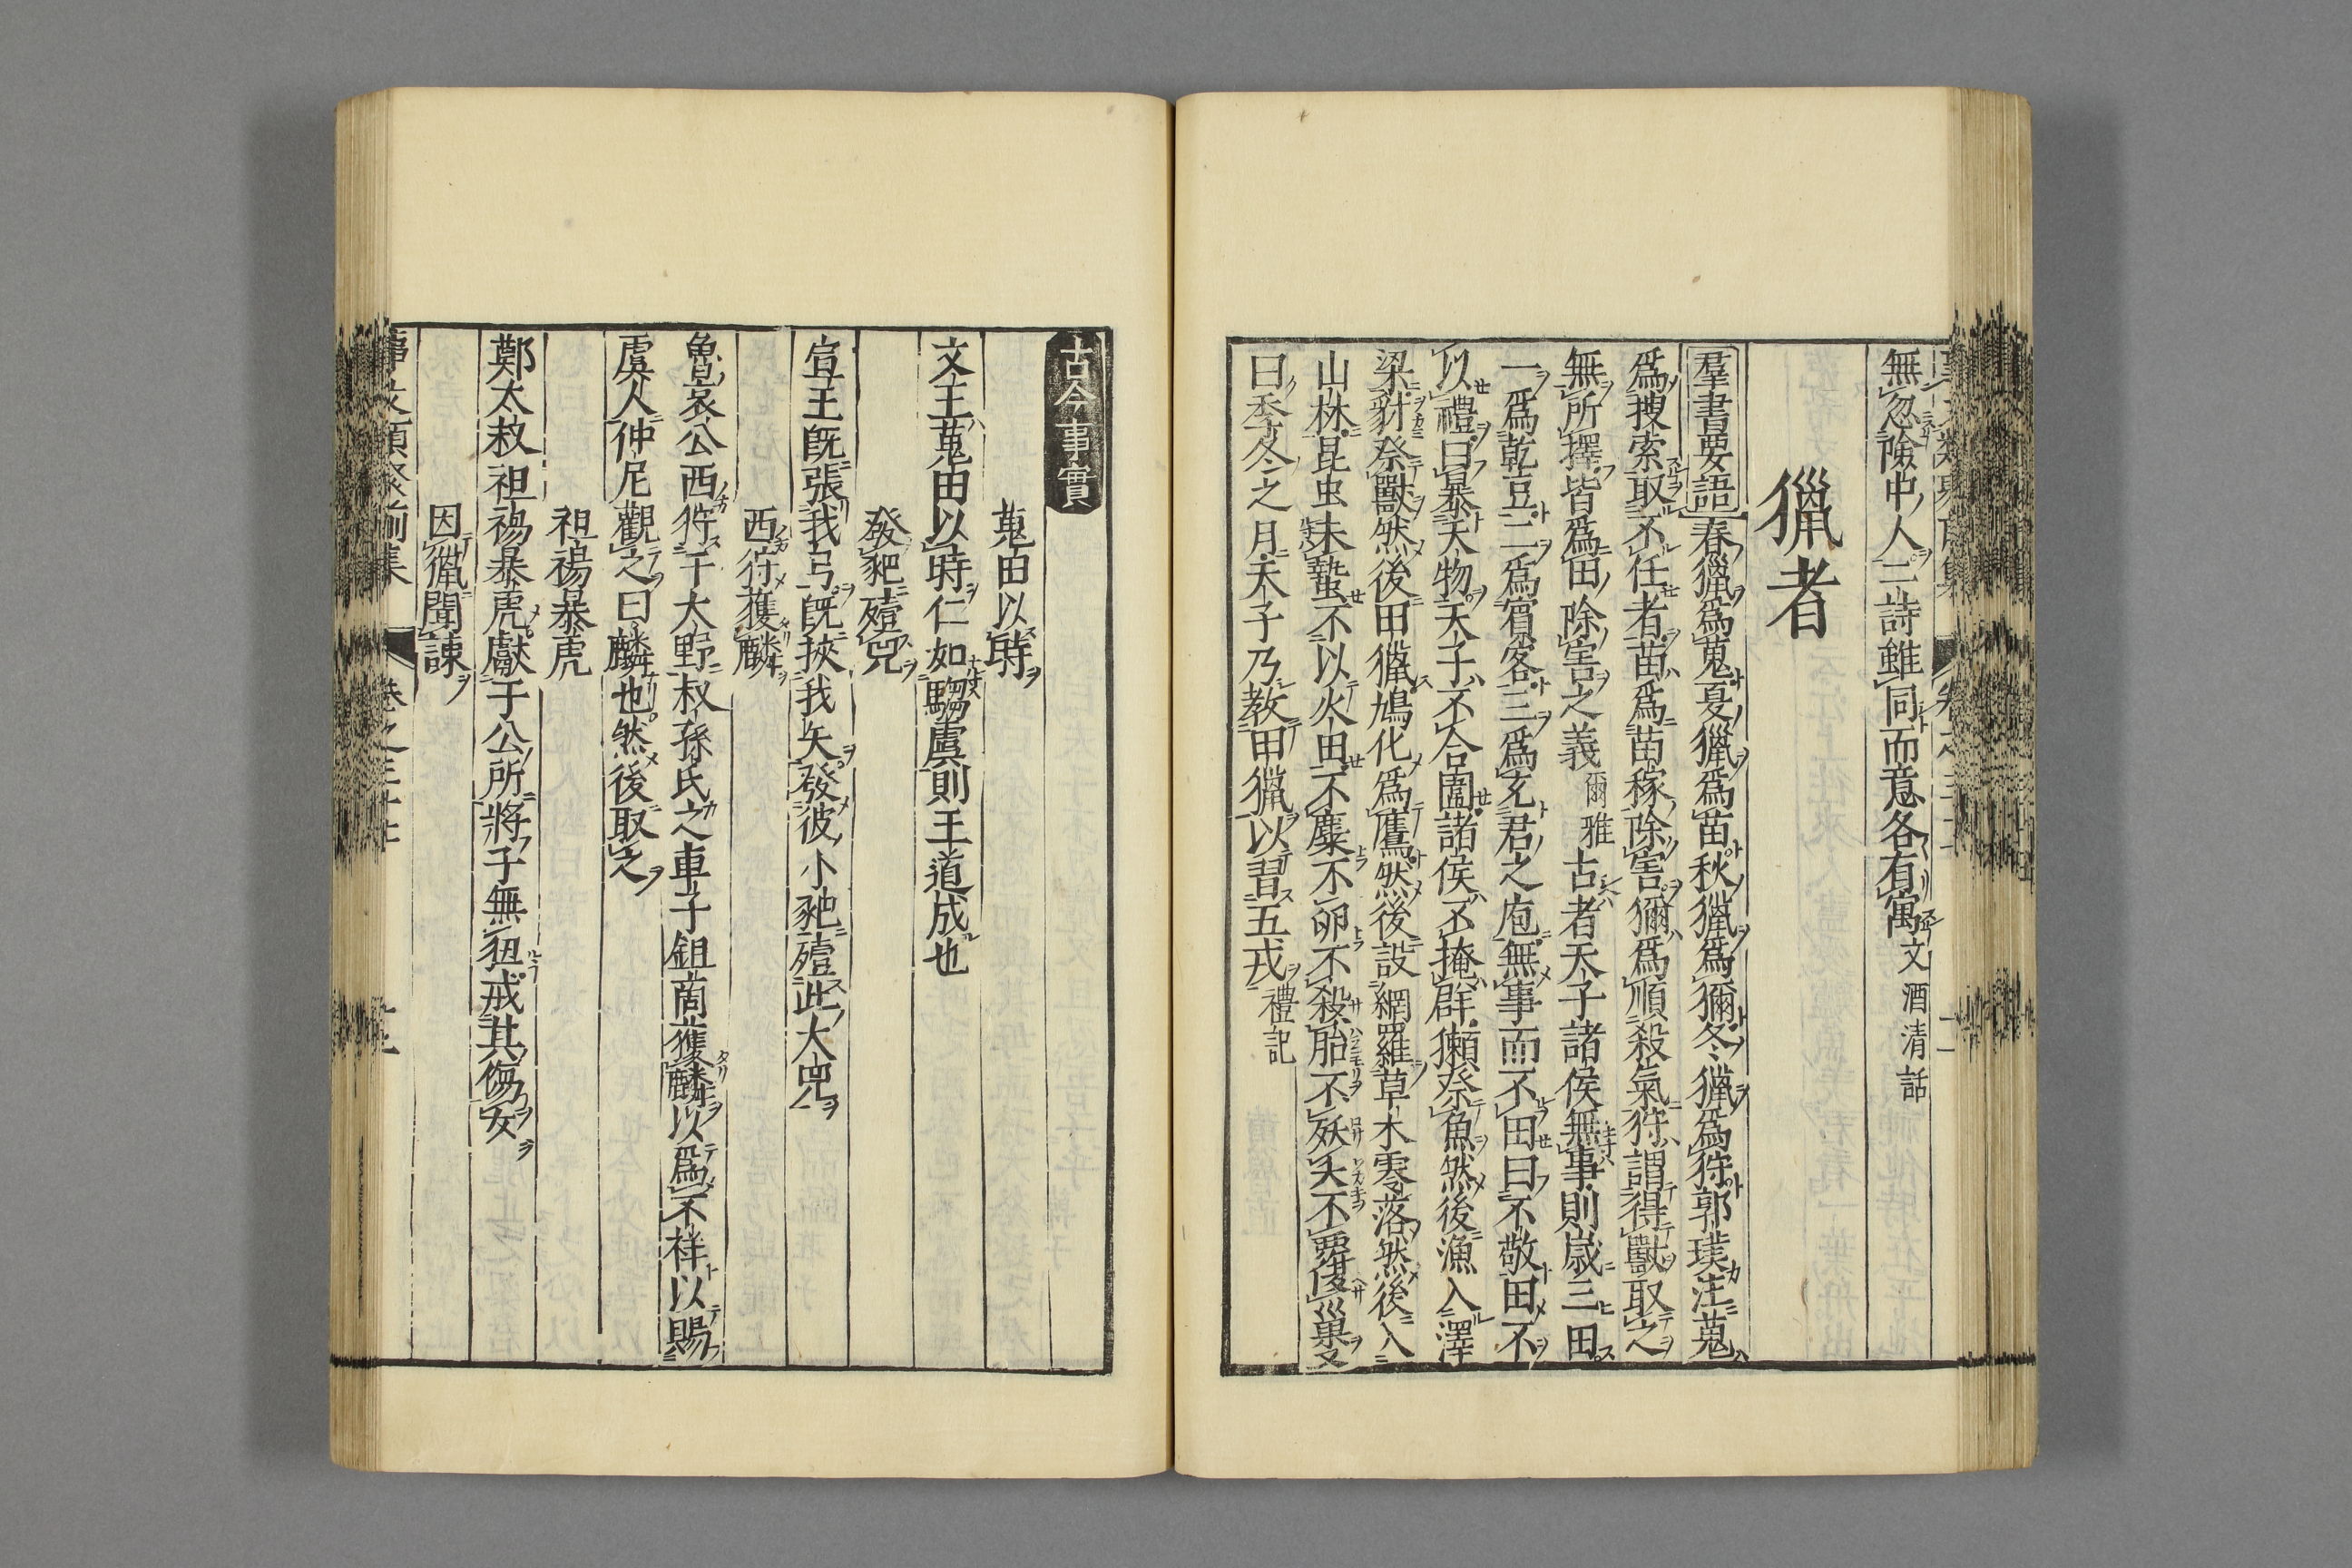 無忽險中人二詩雖同而意各有寓 文酒清話
獵者
羣書要語 春獵爲蒐夏獵爲苗秋獵爲獮冬獵爲狩郭璞注蒐
爲搜索取不任者苗爲苗稼除害獮爲順殺氣狩謂得獸取之
無所擇皆爲田除害之義 爾雅 古者天子諸侯無事則歲三田
一爲乾豆二爲賓客三爲充君之庖無事而不田曰不敬田不
以禮曰暴天物天子不合圍諸侯不掩群獺祭魚然後漁人入澤
梁豺祭獸然後田獵鳩化爲鷹然後設網羅草木零落然後入
山林昆虫未蟄不以火田不麛不卵不殺胎不殀夭不覆巢又
曰季冬之月天子乃教田獵以習五戎 禮記
古今事實
蒐田以時
文王蒐田以時仁如騶虞則王道成也
發豝殪兕
宣王旣張我弓旣挾我矢發彼小豝殪此大兕
西狩獲麟
魯哀公西狩于大野叔孫氏之車子鉏商獲麟以爲不祥以賜
虞人仲尼觀之曰麟也然後取之
袒裼暴虎
鄭太叔袒裼暴虎獻于公所將子無狃戒其傷女
因獵聞諫
事文類聚前集 卷之三十七